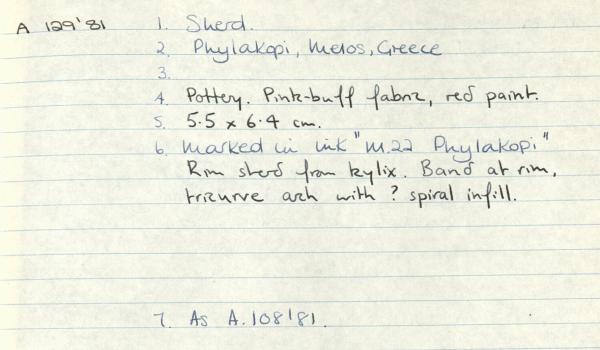 A 129'81
1. Sherd.
2. Phylakopi, Melos, Greece
3.
4. Pottery. Pink-buff fabric, red paint.
5. 5.5 x 6.4 cm.
6. Marked in ink "M.22 Phylakopi"
Rim sherd from kylix. Band at rim,
tricurve arch with ? spiral infill.
7. As A.108'81.